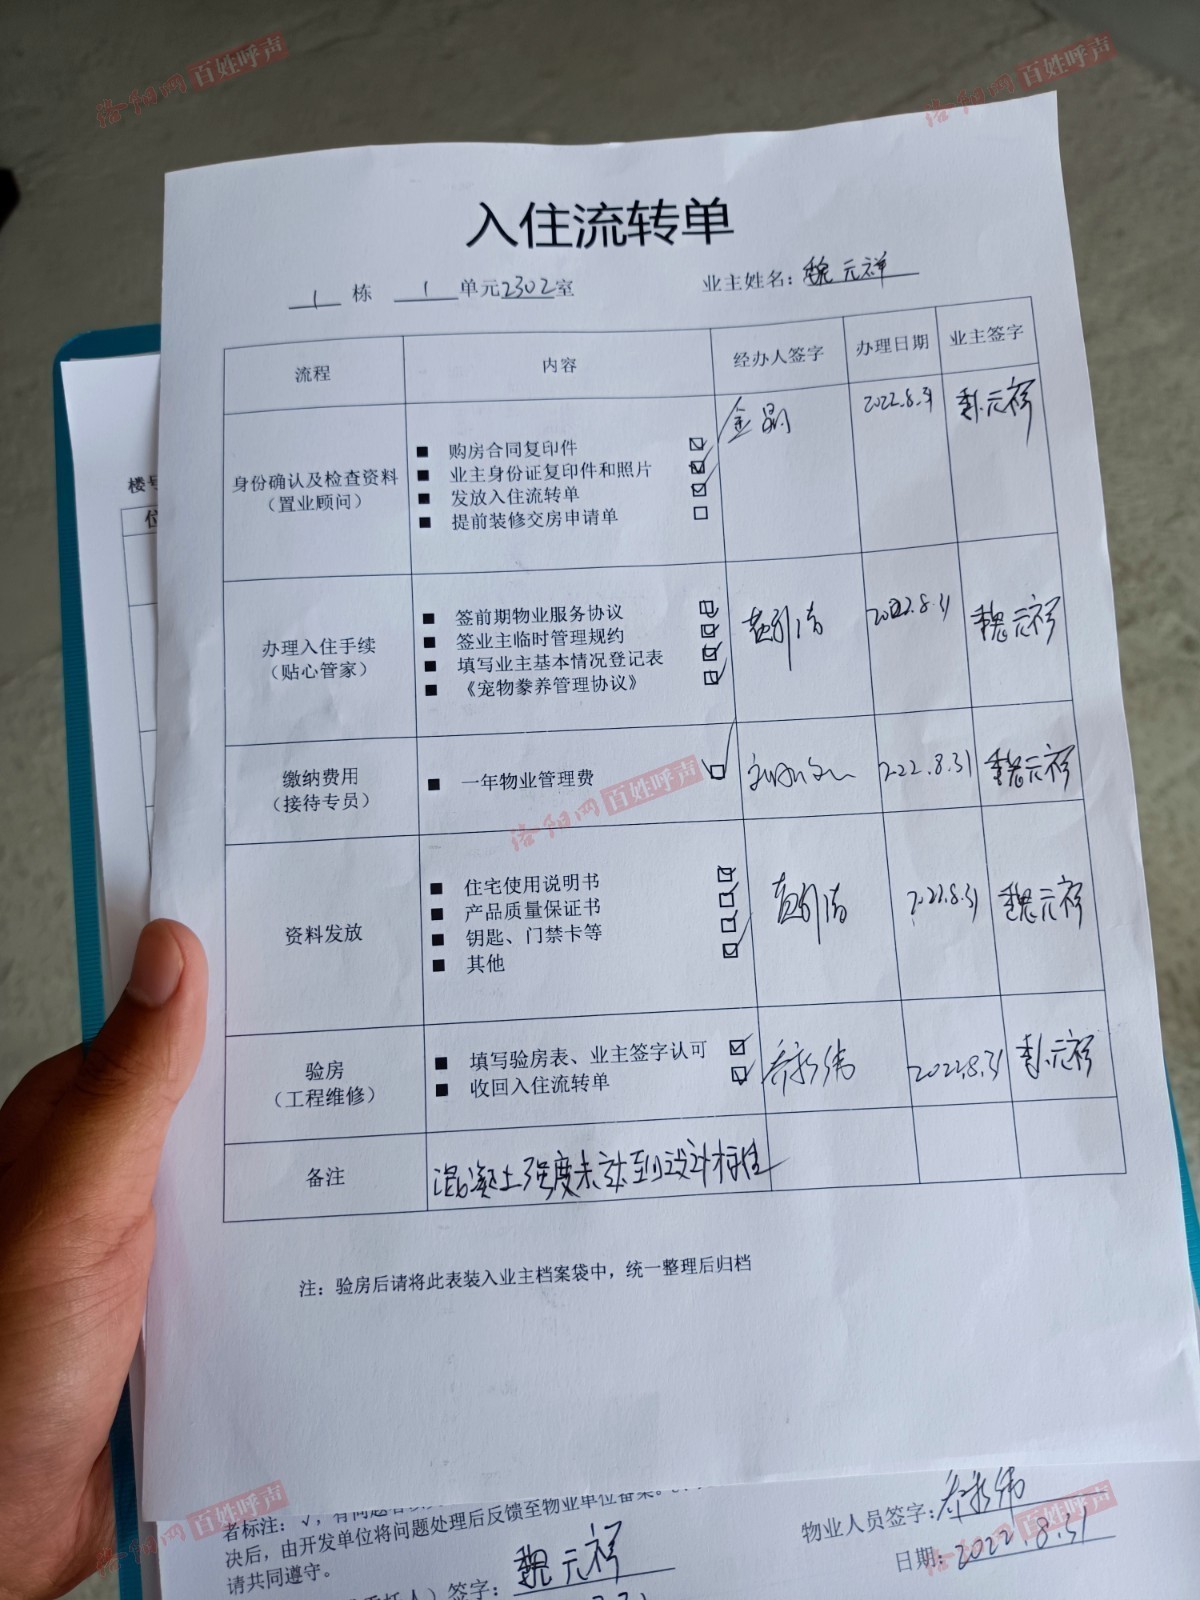 洛阳网 百姓呼声
洛阳网 百姓呼声
入住流转单
1 栋 1 单元2302室 业主姓名：魏元祥
流程 内容 经办人签字 办理日期 业主签字
身份确认及检查资料
（置业顾问）
■ 购房合同复印件 ☑
■ 业主身份证复印件和照片 ☑
■ 发放入住流转单 ☑
■ 提前装修交房申请单 □
2022.8.31 魏元祥
办理入住手续
（贴心管家）
■ 签前期物业服务协议 ☑
■ 签业主临时管理规约 ☑
■ 填写业主基本情况登记表 ☑
■ 《宠物豢养管理协议》 ☑
2022.8.31 魏元祥
缴纳费用
（接待专员）
■ 一年物业管理费 ☑
2022.8.31 魏元祥
洛阳网 百姓呼声
资料发放
■ 住宅使用说明书 ☑
■ 产品质量保证书 ☑
■ 钥匙、门禁卡等 ☑
■ 其他 ☑
2022.8.31 魏元祥
验房
（工程维修）
■ 填写验房表、业主签字认可 ☑
■ 收回入住流转单 ☑
2022.8.31 魏元祥
备注 混凝土强度未达到设计标准
注：验房后请将此表装入业主档案袋中，统一整理后归档
楼号
者标注：√，有问题
决后，由开发单位将问题处理后反馈至物业单位备案。
请共同遵守。
签字：魏元祥
物业人员签字：
日期：2022.8.31
洛阳网 百姓呼声
洛阳网 百姓呼声